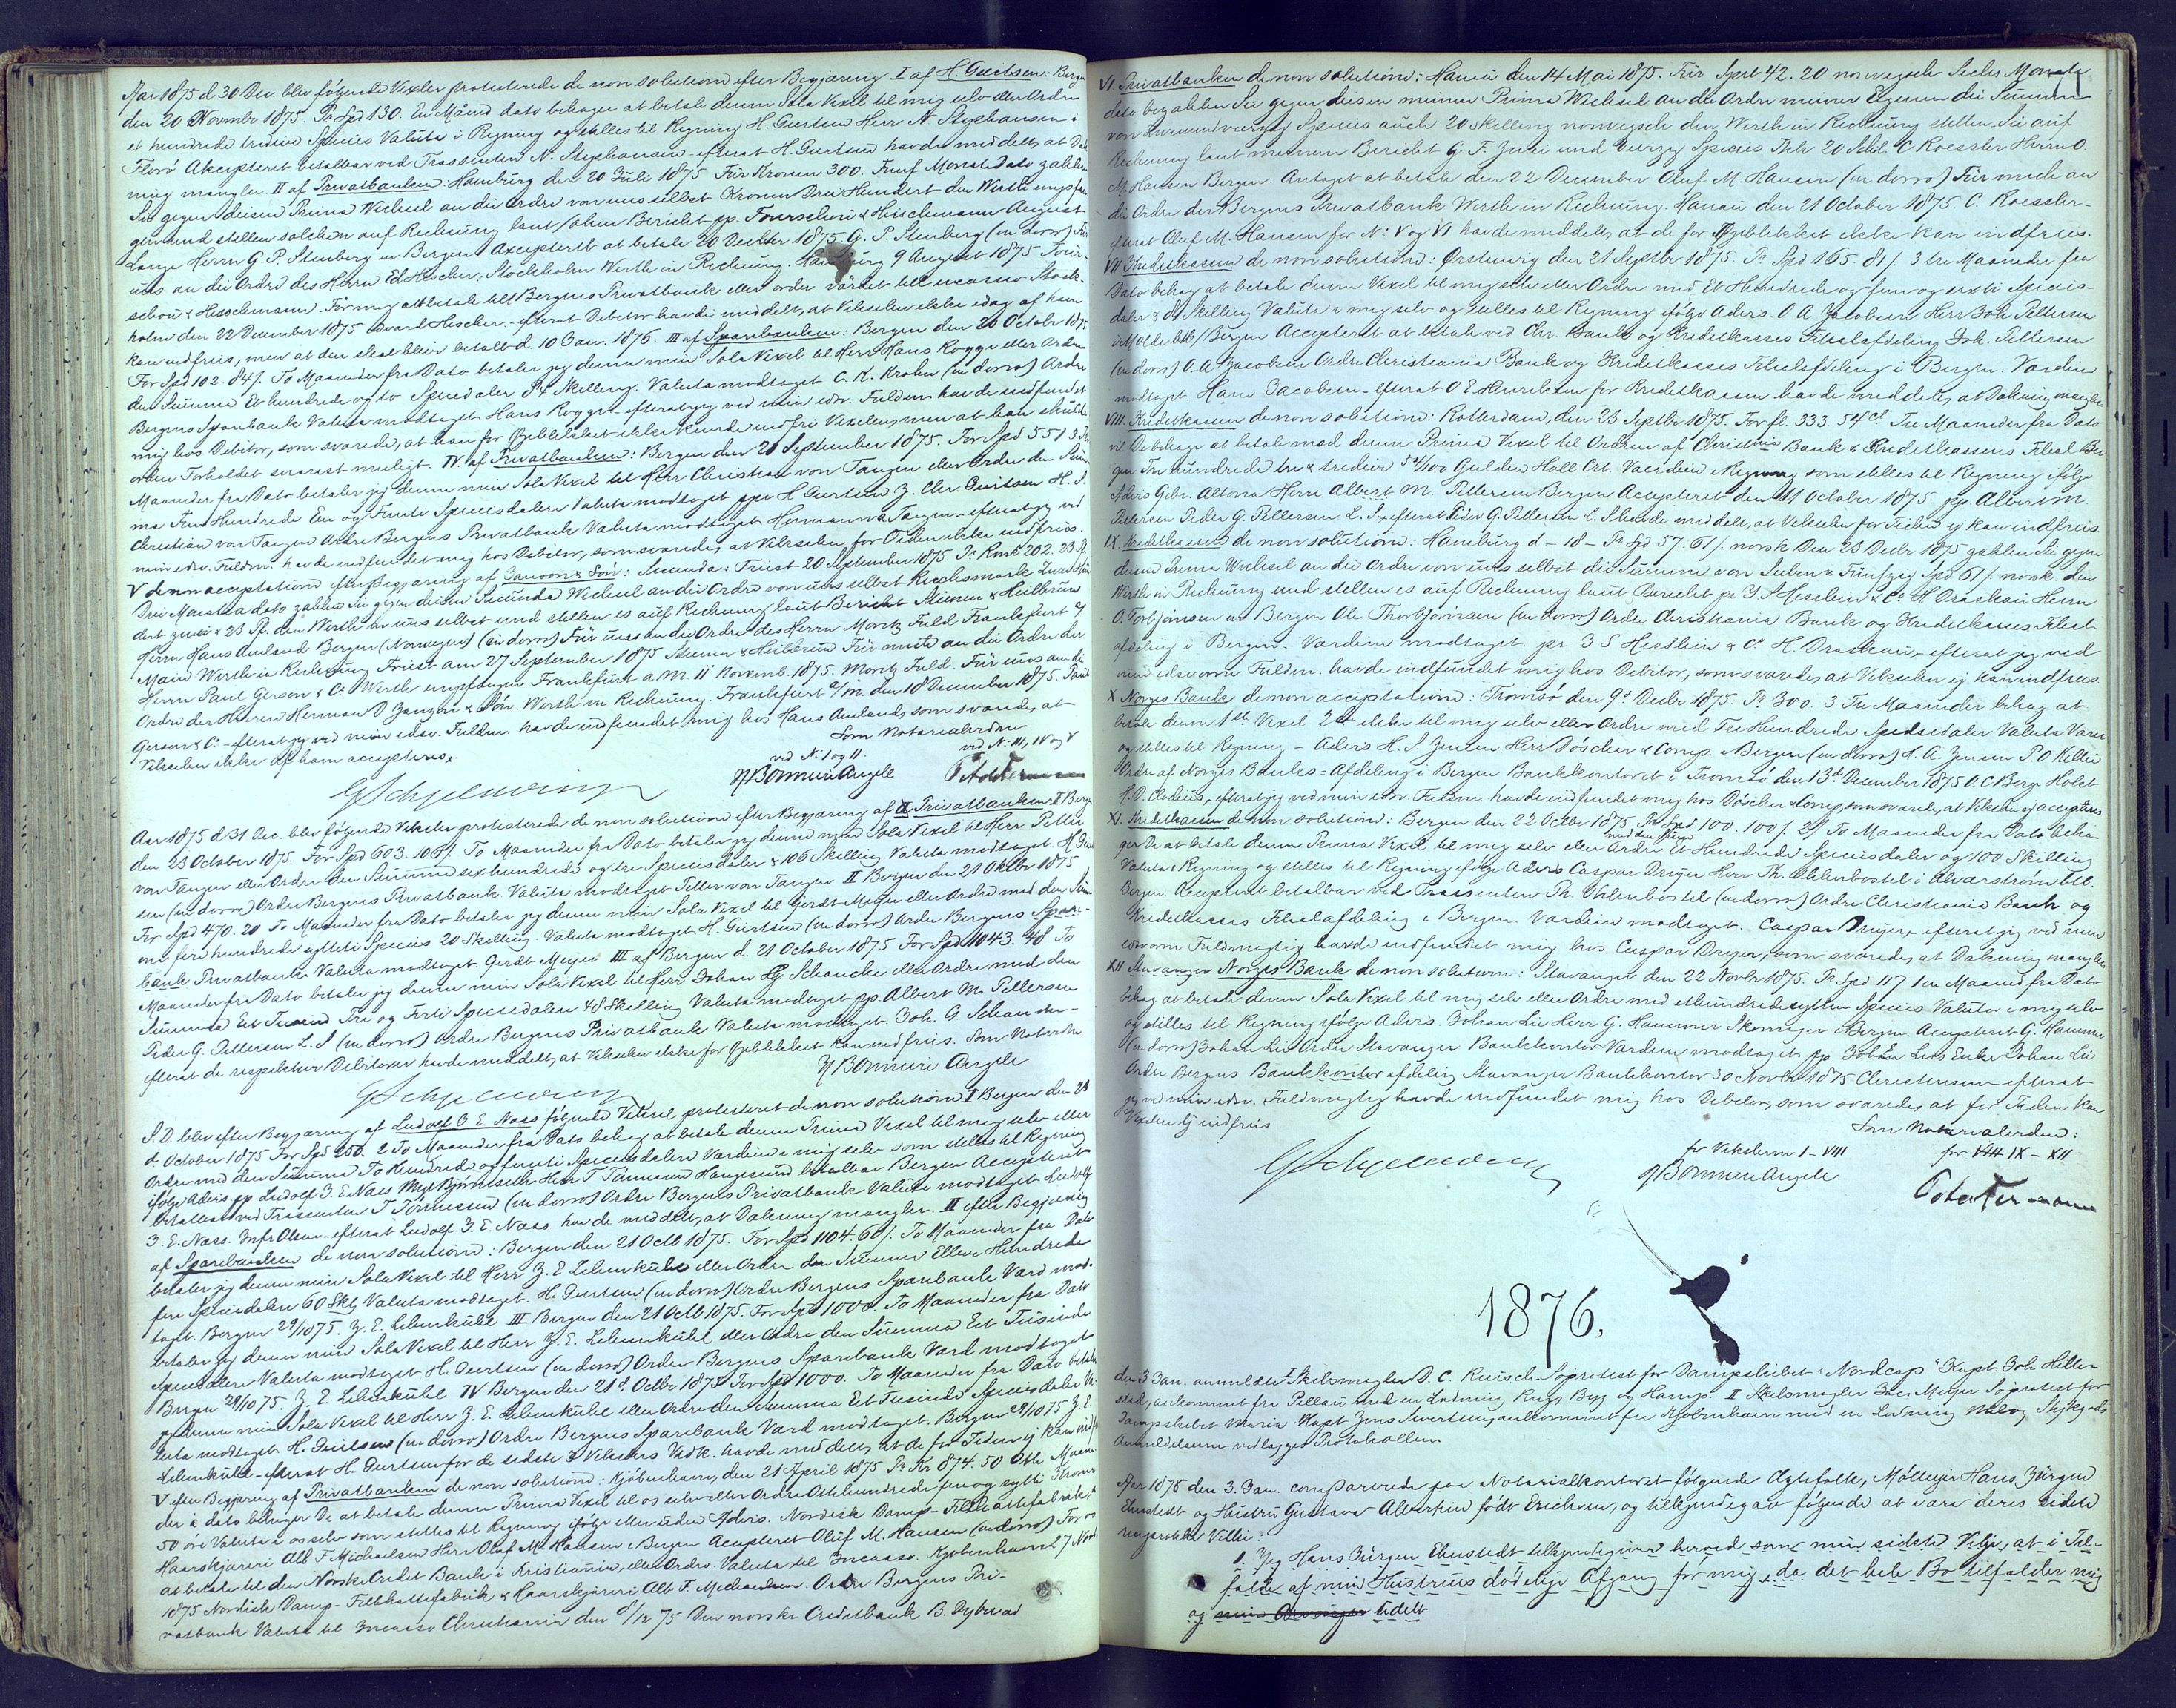 Aar 1875 d. 30 Dec. blev følgende Vexler protesterede de non solutione efter Begjæring I af H. Guertsen: Bergen
den 20 November 1875. Pr Spd 130. En Maaned dato behager at betale denne Sola Vexel til mig selv eller Ordre
et hundrede tredive Species Valuta i Regning og stilles til Regning H. Guertsen Herr N Stephansen i
Florø Akcepteret betalbar ved Trassenten N. Stephansen - efterat H. Guertsen havde meddelt, at Dæk
ning mangler. II af Privatbanken: Hamburg den 20 Juli 1875 Für Kronen 300. Fünf Monate Dato zahlen
Sie gegen diesen Prima Wechsel an die Ordre von uns selbst Kronen Drei Hundert den Werth empfan
gen und stellen solchen auf Rechnung laut / ohne Bericht pp. Fourschou & Hirschmann August
Lange Herrn G. P. Stenberg in Bergen Axcepterth at betale 20 December 1875 G. P. Stenberg (in dorso) Für
uns an die Ordre des Herrn Ed Hescher, Stockholm Werth in Rechnung. Hamburg 9 August 1875 Four-
schou & Hirschmann. För mig att betale till Bergens Privatbank eller order Värdet till incasso Stock-
holm den 22 December 1875 Edvard Hescher. - efterat Debitor havde meddelt, at Vekselen ikke idag af ham
kan indfries, men at den skal blive betalt d. 10 Jan. 1876. III af Sparebanken: Bergen den 26 Octobr 1875
For Spd 102. 84 /. To Maaneder fra Dato betaler jeg denne min Sola Vexel til Herr Hans Kogge eller Ordre
den Summa Et hundrede og to Speciedaler 84 Skelling. Valuta modtaget C. K. Krohn (in dorso) Ordre
Bergens Sparebank Valuta modtaget Hans Kogge - efterat jeg ved min edsv. Fuldm. havde indfundet
mig hos Debitor, som svarede, at han for Øieblikket ikke kunde indfri Vexelen, men at han skulde
ordne Forholdet snarest muligt. IV. af Privatbanken: Bergen den 21 September 1875. For Spd 551 3 Tre
Maaneder fra Dato betaler jeg denne min Sola Vexel til Herr Christian von Tangen eller Ordre den Sum
ma Fem Hundrede Een og Femti Speciesdaler Valuta modtaget ppr H Guertsen Z. Chr. Guertsen H. S.
Christian von Tangen Ordre Bergens Privatbank Valuta modtaget Herman va Tangen - efterat jeg ved
min edsv. Fuldm. havde indfundet mig hos Debitor, som svarede, at Vekselen for Tiden ikke indfries.
V de non acceptatione efter Begjæring af Janson & Søn: Secunda: Triest 20 September 1875. Pr Rmk 202. 23 Pf.
Drei Monate a dato zahlen Sie gegen diesen Secunda Wechsel an die Ordre von uns selbst Reichsmark Zwei Hun
dert zwei & 23 Pf. den Werth in uns selbst und stellen es auf Rechnung laut Bericht Stienen & Heilbrun
Herrn Hans Amland Bergen (Norwegen) (in dorso) Für uns an die Ordre des Herrn Moritz Fuld Frankfurt a/
Main Werth in Rechnung Triest am 27 September 1875 Stienen & Heilbrun Für mich an die Ordre der
Herrn Paul Gerson & Co Werth empfangen Frankfurt a M. 11 Novemb. 1875. Moritz Fuld. Für uns an die
Ordre der Herren Herman D Janzon & Søn. Werth in Rechnung. Frankfurt a/m. den 18 December 1875. Paul
Gerson & Co - efterat jeg ved min edsv. Fuldm. havde indfundet mig hos Hans Amland, som svarede, at
Vekselen ikke af ham accepteres.
Som Notarialvidne
ved N. I og II.
ved N: III, IV og V
Aar 1875 d. 31 Dec. blev følgende Veksler protesterede de non solutione efter Begjæring af Privatbanken I Bergen
den 23 October 1875. For Spd 603. 106 /. To Maaneder fra Dato betaler jeg denne min Sola Vexel til Herr Petter
von Tangen eller Ordre den Summa sex hundrede og tre Speciesdaler & 106 Skelling Valuta modtaget. H Guert
sen (in dorso) Ordre Bergens Privatbank. Valuta modtaget Petter von Tangen II Bergen den 21 Oktbr 1875
For Spd 470. 20 To Maaneder fra Dato betaler jeg denne min Sola Vexel til Gerdt Meyer eller Ordre med den Sum
ma fire hundrede sytti Species 20 Skelling. Valuta modtaget H. Guertsen (in dorso) Ordre Bergens Spare-
bank Privatbank Valuta modtaget. Gerdt Meyer III af Bergen d. 21 October 1875 For Spd 1043. 48 To
Maaneder fra Dato betaler jeg denne min Sola Vexel til Herr Johan G. Schancke eller Ordre med den
Summa Et Tusind Tre og Firti Speciedaler 48 Skelling Valuta modtaget pp. Albert M. Pettersen
Peder G. Pettersen L. S. (in dorso) Ordre Bergens Privatbank Valuta modtaget Joh. G. Schancke -
efterat de respektive Debitorer havde meddelt, at Vekselen ikke for Øieblikket kan indfries. Som Notarialvidne
S. D. blev efter Begjæring af Ludolf J. E. Næss følgende Veksel protesteret de non solutione I Bergen den 28
d October 1875 For Spd 250. 2 To Maaneder fra Dato behag at betale denne Prima Vexel til mig selv eller
Ordre med den Summa To Hundrede og femti Speciesdaler Værdien i mig selv som stilles til Regning
ifølge Advis. pp Ludolf J. E. Næss Herr T Tønnesen Haugesund betalbar Bergen Accepteret
betalbar ved Trassenten T Tönnessen (in dorso) Ordre Bergens Privatbank Valuta modtaget Ludolf
J. E. Næss. - efterat Ludolf J. E. Næss havde meddelt, at Dækning mangler. II efter Begjæring
af Sparebanken de non solutione: Bergen den 21 Octb 1875. For Spd 1104. 60 /. To Maaneder fra Dato
betaler jeg denne min Sola Vexel til Herr Z. E. Lehmkuhl eller Ordre den Summa Elleve Hundrede
fire Speciedaler 60 Sk. Valuta modtaget. H. Guertsen (in dorso) Ordre Bergens Sparebank Værd mod-
taget. Bergen 29/10 75. Z. E. Lehmkuhl III Bergen den 21 Octb 1875. For Spd 1000. To Maaneder fra Dato
betaler jeg denne min Sola Vexel til Herr Z. E. Lehmkuhl eller Ordre den Summa Eet Tusinde
Speciesdaler Valuta modtaget H. Guertsen (in dorso) Ordre Bergens Sparebank Værd modtaget
Bergen 29/10 75. Z. E. Lehmkuhl IV Bergen den 21de Octbr 1875 For Spd 1000. To Maaneder fra Dato betaler
jeg denne min Sola Vexel til Herr Z. E. Lehmkuhl eller Ordre den Summa Eet Tusinde Speciesdaler Va
luta modtaget H. Guertsen (in dorso) Ordre Bergens Sparebank Værd modtaget. Bergen 29/10 75 Z. E.
Lehmkuhl - efterat H. Guertsen for de sidste 3 Vekslers Vedk. havde meddelt, at de for Tiden ej kan indfries
V efter Begjæring af Privatbanken de non solutione: Kjöbenhavn, den 21 April 1875 Pr Kr 874. 50 Otte Maane
der a dato behager De at betale denne Prima Vexel til os selv eller Ordre Ottehundrede fire og sytti Kroner
50 öre Valuta i os selv som stilles til Regning ifølge eller uden Advis. Nordisk Damp-Filthattefabrik &
Haarskjæreri Alb F Michaelsen Herr Oluf M. Hansen i Bergen Accepteret Oluf M. Hansen (in dorso) For os
at betale til den Norske Credit Bank i Kristiania, eller Ordre. Valuta til Incasso. Kjøbenhavn 27 Novbr
1875 Nordisk Damp-Filthattefabrik & Haarskjæreri Alb F. Michaelsen. Ordre Bergens Pri-
vatbank Valuta til Incasso Christiania den 8/12 75 Den norske Creditbank B. Dybwad
VI. Privatbanken de non solutione: Hanau den 14 Mai 1875. Für Spect 42. 20 norwegisch Sechs Monate
dato bezahlen Sie gegen diesen meinen Prima Wechsel an die Ordre meiner Eigenen die Summe
von Zweiundvierzig Species auch 20 Skelling norwegisch den Werth in Rechnung stellen Sie auf
Rechnung laut meinem Bericht G. F. Zwei und Vierzig Species Thlr 20 Skil. C Roessler Herrn O.
M. Hansen Bergen. Antaget at betale den 22 December Oluf M. Hansen (in dorso) Für mich an
die Ordre der Bergens Privatbank Werth in Rechnung. Hanau den 21 October 1875. C. Roessler -
efterat Oluf M. Hansen for N: V og VI havde meddelt, at de for Øieblikket ikke kan indfries.
VII Kreditkassen de non solutione: Ørstenvig den 21 Septbr 1875. Pr Spd 165. 81 /. 3 tre Maaneder fra
Dato behag at betale denne Vexel til mig selv eller Ordre med Et Hundrede og fem og sexti Species-
daler & 81 Skelling Valuta i mig selv og stilles til Regning ifølge Advis. O A Jacobsen Herr Joh Pettersen
i Molde btb / Bergen Accepteret at betale ved Chr. Bank og Kreditkasses Filialafdeling Joh. Pettersen
(in dorso) O. A. Jacobsen Ordre Christiania Bank og Kreditkasses Filialafdeling i Bergen. Værdien
modtaget Hans Jacobsen - efterat O E Henriksen for Kreditkassen havde meddelt, at Dækning mangler
VIII. Kreditkassen de non solutione: Rotterdam, den 23 Septbr 1875. For fl. 333. 54 ct. Tre Maaneder fra Dato
vil De behage at betale mod denne Prima Vexel til Ordren af Christnia Bank & Kreditkassens Filial Ber
gen Tre Hundrede tre & tredive 54/100 Gulden Holl Crt. Værdien i Regning som stilles til Regning ifølge
Advis Gebr. Altona Herrn Albert M. Pettersen Bergen Accepteret den 11 October 1875. pp. Albert M.
Pettersen Peder G. Pettersen L. S. - efterat Peder G. Pettersen L. S. havde meddelt, at Vekselen for Tiden ej kan indfries.
IX Kreditkassen de non solutione: Hamburg d - 18 - Pr Spd 57. 61 /. norsk Den 23 Decbr 1875 zahlen Sie gegen
diesen Prima Wechsel an die Ordre von uns selbst die Summe von Sieben & Fünfzig Spd 61 /. norsk. den
Werth in Rechnung und stellen es auf Rechnung laut Bericht pr J. S Hesslein & Co H Draskau Herrn
O. Torbjörnsen in Bergen Ole Thorbjörnsen (in dorso) Ordre Christiania Bank og Kreditkasses Filial-
afdeling i Bergen. Værdien modtaget. pr J S Hesslein & Co H. Draskau - efterat jeg ved
min edsvorn Fuldm. havde indfundet mig hos Debitor, som svarede, at Vekselen ej kan indfries.
X Norges Bank de non acceptatione: Tromsø den 9de Decbr 1875. Pr 300. 3 Tre Maaneder behag at
betale denne 1ste Vexel 2den ikke til mig selv eller Ordre med Tre Hundrede Speciedaler Valuta Varer
og stilles til Regning - Advis H. S. Jensen Herr Döscher & Comp. Bergen (in dorso) H. A. Jensen P. O Killie
Ordre af Norges Banks-Afdeling i Bergen Bankkontoret i Tromsø den 13de December 1875 O. C Berg Holst
- efterat jeg ved min edsv. Fuldm. havde indfundet mig hos Döscher & Comp, som svarede, at Vekselen ej accepteres
XI. Kreditkassen de non solutione: Bergen den 22 Octbr 1875 Pr Spd 100. 100 /. 2 / To Maaneder fra Dato beha-
ger De at betale denne Prima Vexel til mig selv eller Ordre med den Summa Et Hundrede Speciesdaler og 100 Skilling
Valuta i Regning og stilles til Regning ifølge Advis Caspar Dreyer Herr Th. Ahlerbostel i Alverström btl.
Bergen. Accepteret betalbar ved Trassenten Th. Valenbostel (in dorso) Ordre Christiania Bank og
Kreditkasses Filialafdeling i Bergen Værdien modtaget. Caspar Dreyer, efterat jeg ved min
edsvorne Fuldmægtig havde indfundet mig hos Caspar Dreyer, som svarede, at Dækning mangler
XII Stavanger Norges Bank de non solutione: Stavanger den 22 Novbr 1875. Pr Spd 117 1 en Maaned fra Dato
behag at betale denne Sola Vexel til mig selv eller Ordre med et hundrede sytten Species Valuta i mig selv
og stilles til Regning ifølge Advis. Johan Lie Herr G. Hammer Skomager i Bergen. Accepteret G. Hammer
(in dorso) Johan Lie Ordre Stavanger Bankkontor Værdien modtaget pp Johan Lies Enke Johan Lie
Ordre Bergens Bankkontor afdeling Stavanger Bankkontor 30 Novbr 1875 Christensen - efterat
jeg ved min edsv. Fuldmægtig havde indfundet mig hos Debitor, som svarede, at for Tiden kan
Vexelen ej indfries
Som Notarialvidne:
for Vekslerne I - VIII
for IX - XII
1876.
den 3 Jan. anmeldte I Skibsmægler D. C. Kuisch Søprotest for Dampskibet "Nordcap" Kapt Joh. Hille-
stad, ankommet fra Pillau med en Ladning Rug, Byg og Hamp. II Skibsmægler Joh. Meyer Søprotest for
Dampskibet Maria Kapt Jens Sivertsen, ankommet fra Kjøbenhavn med en Ladning Stykgods
Anmeldelserne vedlægges Protokollen
Aar 1876 den 3. Jan. comparerede paa Notarialkontoret følgende Ægtefolk, Møllejer Hans Jürgen
Ehmstedt og Hustru Gustava Albertine født Erichsen, og tilkjendegav følgende at være deres sidste
uigjenkaldelige Villie:
1. Jeg Hans Jürgen Ehmstedt tilkjendegiver herved som min sidste Vilje, at i Til-
fælde af min Hustrues dødelige Afgang før mig, da det hele Bo tilfalder mig
og udelt